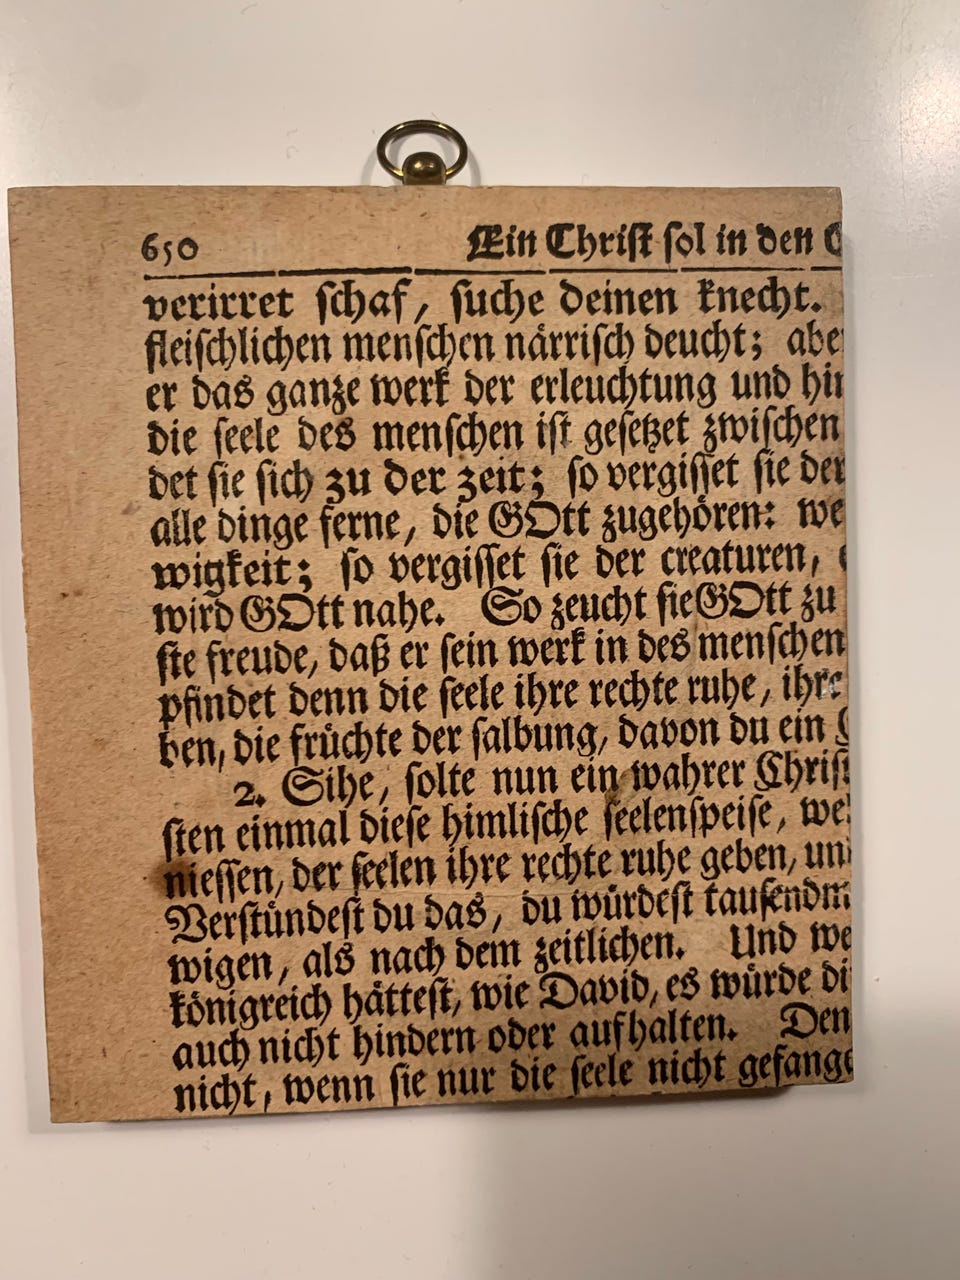 650 Ein Christ sol in den
verirret schaf, suche deinen knecht.
fleischlichen menschen närrisch deucht; abe
er das ganze werk der erleuchtung und hin
die seele des menschen ist gesetzet zwischen
det sie sich zu der zeit; so vergisset sie der
alle dinge ferne, die GOtt zugehören: we
wigkeit; so vergisset sie der creaturen,
wird GOtt nahe. So zeucht sie GOtt zu
ste freude, daß er sein werk in des menschen
pfindet denn die seele ihre rechte ruhe, ihre
ben, die früchte der salbung, davon du ein
2. Sihe, solte nun ein wahrer Christ
sten einmal diese himlische seelenspeise, we
niessen, der seelen ihre rechte ruhe geben, un
Verstündest du das, du würdest tausendm
wigen, als nach dem zeitlichen. Und we
königreich hättest, wie David, es würde di
auch nicht hindern oder aufhalten. Den
nicht, wenn sie nur die seele nicht gefange